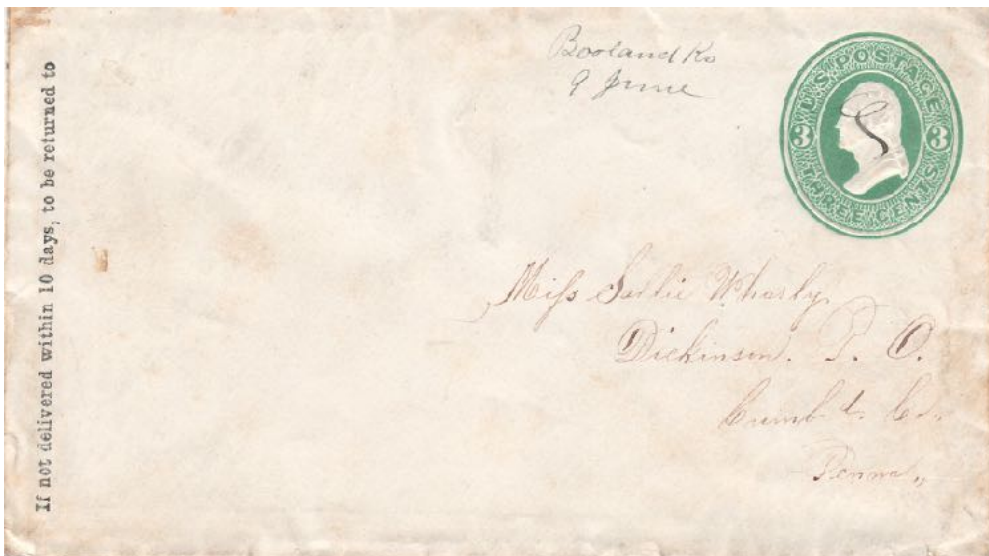 If not delivered within 10 days, to be returned to
Booland Ks
9 June
U.S. POSTAGE
3 3
THREE CENTS
Miss Sallie Wharly
Dickinson. P. O.
Cumb'd. Co.
Penna,,